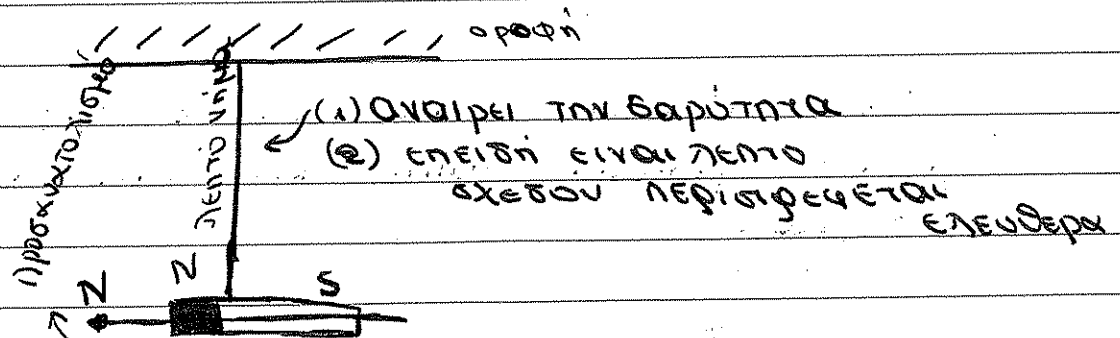 οροφή
Προσανατολισμό
λεπτό νήμα
(1) αναιρεί την βαρύτητα
(2) επειδή ειναι λεπτο
σχεδον περιστρεφεται
ελευθερα
N
N
S